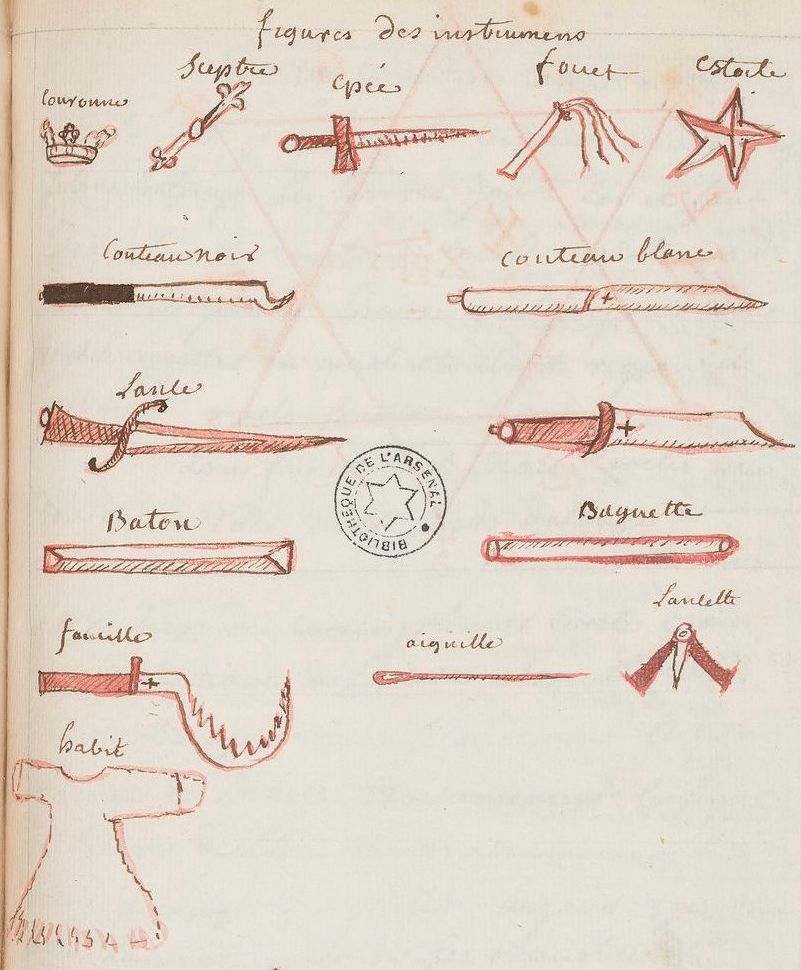 figures des instrumens
Couronne
Sceptre
epée
fouet
estoile
Couteau noir
couteau blanc
Lance
Baton
Baguette
faucille
aiguille
Lancette
habit
BIBLIOTHEQUE DE L'ARSENAL